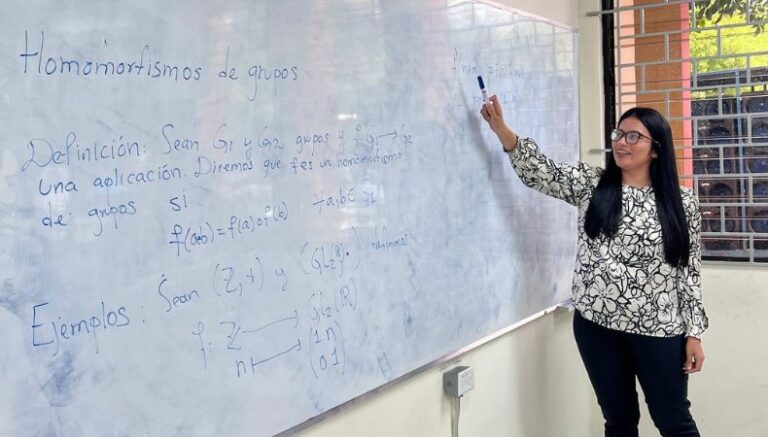 Homomorfismos de grupos
Definición: Sean G1 y G2 grupos y f: G1 → G2
una aplicación. Diremos que f es un homomorfismo
de grupos si
f(ab) = f(a) o f(b) ∀ a,b ∈ G1
Ejemplos: Sean (Z,+) y (GL2(R), ·) definimos
f: Z → GL2(R)
n ↦ (1 n)
(0 1)